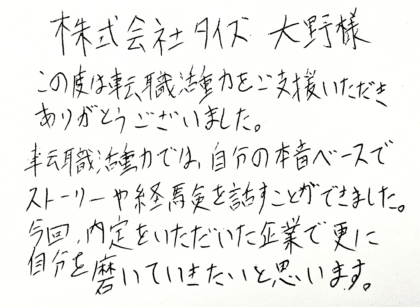 株式会社タイズ 大野様
この度は転職活動をご支援いただき
ありがとうございました。
転職活動では、自分の本音ベースで
ストーリーや経験を話すことができました。
今回、内定をいただいた企業で更に
自分を磨いていきたいと思います。